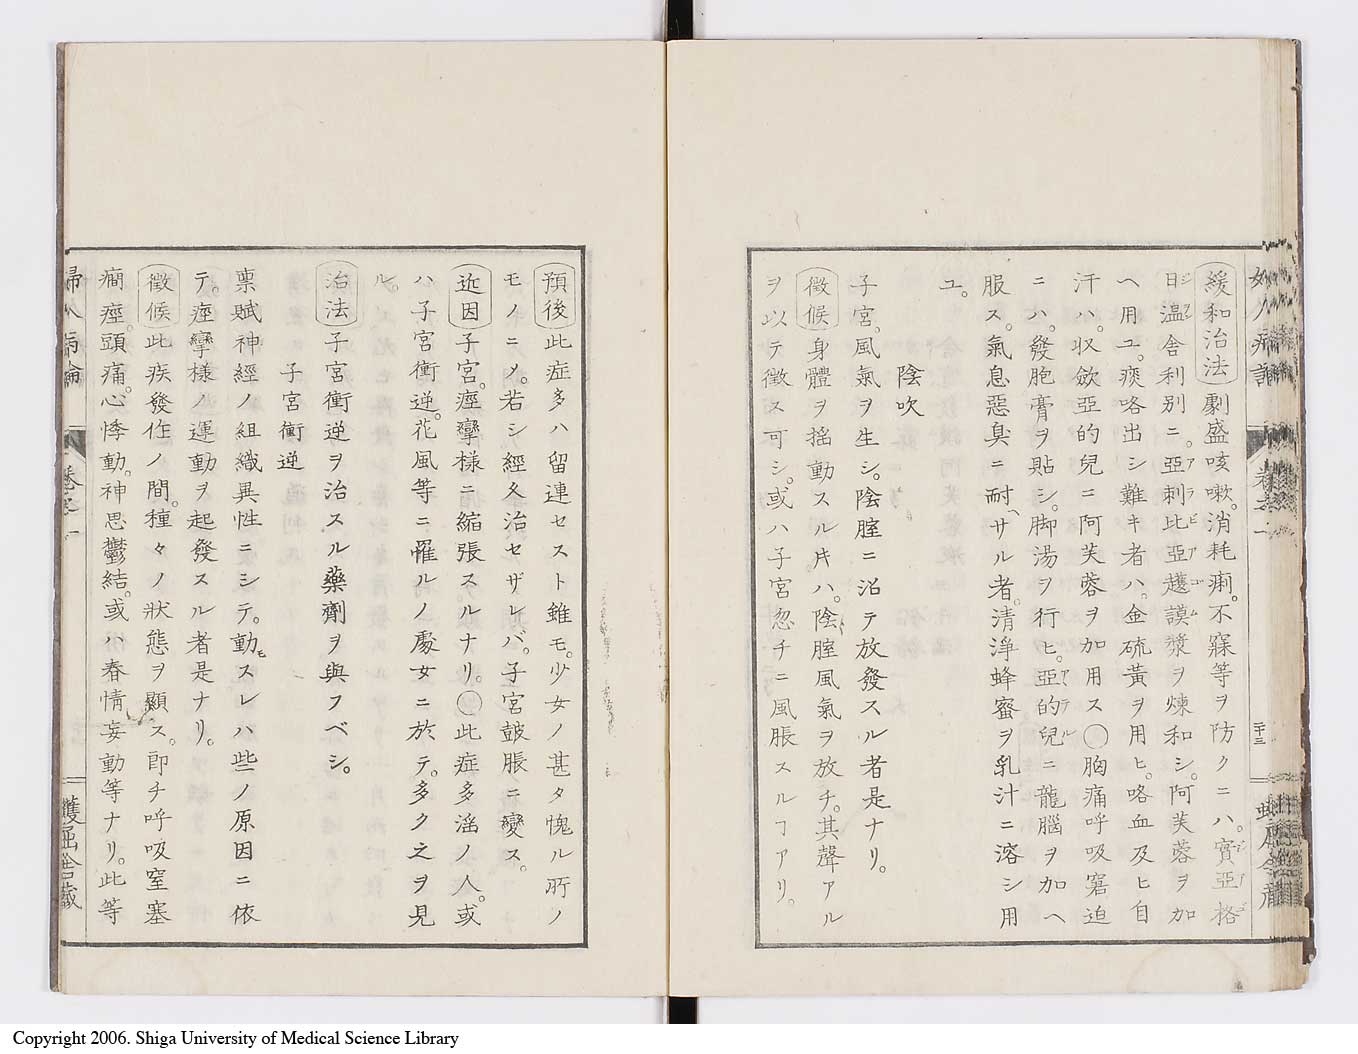 緩和治法 劇盛咳嗽。消耗痢。不寐等ヲ防クニハ。實亞格
日溫舎利別ニ。亞刺比亞護謨漿ヲ煉和シ。阿芙蓉ヲ加
ヘ用ユ。痰咯出シ難キ者ハ。金硫黃ヲ用ヒ。咯血及ヒ自
汗ハ。収斂亞的兒ニ阿芙蓉ヲ加用ス〇胸痛呼吸窘迫
ニハ。發胞膏ヲ貼シ。脚湯ヲ行ヒ。亞的兒ニ龍腦ヲ加ヘ
服ス。氣息惡臭ニ耐ヘサル者。清淨蜂蜜ヲ乳汁ニ溶シ用
ユ。
陰吹
子宮。風氣ヲ生シ。陰膣ニ沿テ放發スル者是ナリ。
徵候 身體ヲ搖動スル片ハ。陰膣風氣ヲ放チ。其聲アル
ヲ以テ徵ス可シ。或ハ子宮忽チニ風脹スルヿアリ。
二十三
預後 此症多ハ留連セスト雖モ。少女ノ甚タ愧ル所ノ
モノニメ。若シ久經治セザレバ。子宮皷脹ニ變ス。
近因 子宮。痙攣様ニ縮張スルナリ。〇此症多滛ノ人。或
ハ子宮衝逆。花風等ニ罹ルノ處女ニ於テ。多ク之ヲ見
ル。
治法 子宮衝逆ヲ治スル藥劑ヲ與フベシ。
子宮衝逆
稟賦神經ノ組織異性ニシテ。動モスレハ些ノ原因ニ依
テ。痙攣様ノ運動ヲ起發スル者是ナリ。
徵候 此疾發作ノ間。種々ノ狀態ヲ顯ス。即チ呼吸窒塞
癎痙。頭痛。心悸動。神思鬱結。或ハ春情妄動等ナリ。此等
婦人病論 卷之一 蠖屈舎藏
Copyright 2006. Shiga University of Medical Science Library